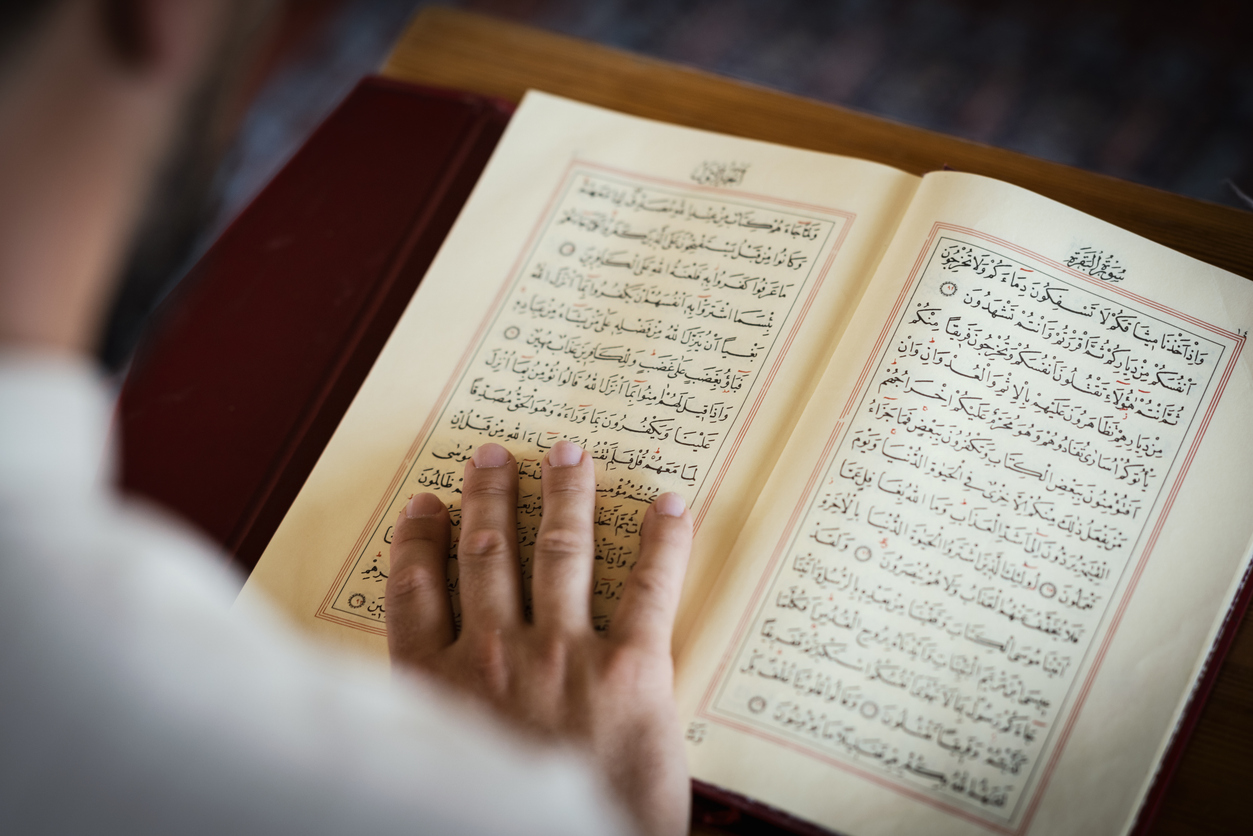 سُورَةُ الْبَقَرَةِ
وَاِذْ اَخَذْنَا مِيثَاقَكُمْ لَا تَسْفِكُونَ دِمَاءَكُمْ وَلَا تُخْرِجُونَ
اَنْفُسَكُمْ مِنْ دِيَارِكُمْ ثُمَّ اَقْرَرْتُمْ وَاَنْتُمْ تَشْهَدُونَ
ثُمَّ اَنْتُمْ هٰؤُلَاءِ تَقْتُلُونَ اَنْفُسَكُمْ وَتُخْرِجُونَ فَرِيقًا مِنْكُمْ
مِنْ دِيَارِهِمْ تَظَاهَرُونَ عَلَيْهِمْ بِالْاِثْمِ وَالْعُدْوَانِ وَاِنْ
يَأْتُوكُمْ اُسَارٰى تُفَادُوهُمْ وَهُوَ مُحَرَّمٌ عَلَيْكُمْ اِخْرَاجُهُمْ
اَفَتُؤْمِنُونَ بِبَعْضِ الْكِتَابِ وَتَكْفُرُونَ بِبَعْضٍ فَمَا جَزَاءُ
مَنْ يَفْعَلُ ذٰلِكَ مِنْكُمْ اِلَّا خِزْىٌ فِى الْحَيٰوةِ الدُّنْيَا وَيَوْمَ
الْقِيٰمَةِ يُرَدُّونَ اِلٰى اَشَدِّ الْعَذَابِ وَمَا اللّٰهُ بِغَافِلٍ عَمَّا
تَعْمَلُونَ اُولٰئِكَ الَّذِينَ اشْتَرَوُا الْحَيٰوةَ الدُّنْيَا بِالْاٰخِرَةِ
فَلَا يُخَفَّفُ عَنْهُمُ الْعَذَابُ وَلَا هُمْ يُنْصَرُونَ وَلَقَدْ
اٰتَيْنَا مُوسَى الْكِتَابَ وَقَفَّيْنَا مِنْ بَعْدِهِ بِالرُّسُلِ وَاٰتَيْنَا
عِيسَى ابْنَ مَرْيَمَ الْبَيِّنَاتِ وَاَيَّدْنَاهُ بِرُوحِ الْقُدُسِ اَفَكُلَّمَا
جَاءَكُمْ رَسُولٌ بِمَا لَا تَهْوٰى اَنْفُسُكُمُ اسْتَكْبَرْتُمْ فَفَرِيقًا
كَذَّبْتُمْ وَفَرِيقًا تَقْتُلُونَ وَقَالُوا قُلُوبُنَا غُلْفٌ بَلْ
لَعَنَهُمُ اللّٰهُ بِكُفْرِهِمْ فَقَلِيلًا مَا يُؤْمِنُونَ
اَلْجُزْءُ الْاَوَّلُ
وَلَمَّا جَاءَهُمْ كِتَابٌ مِنْ عِنْدِ اللّٰهِ مُصَدِّقٌ لِمَا مَعَهُمْ
وَكَانُوا مِنْ قَبْلُ يَسْتَفْتِحُونَ عَلَى الَّذِينَ كَفَرُوا فَلَمَّا جَاءَهُمْ
مَا عَرَفُوا كَفَرُوا بِهِ فَلَعْنَةُ اللّٰهِ عَلَى الْكَافِرِينَ
بِئْسَمَا اشْتَرَوْا بِهِ اَنْفُسَهُمْ اَنْ يَكْفُرُوا بِمَا اَنْزَلَ اللّٰهُ
بَغْيًا اَنْ يُنَزِّلَ اللّٰهُ مِنْ فَضْلِهِ عَلٰى مَنْ يَشَاءُ مِنْ عِبَادِهِ
فَبَاؤُ بِغَضَبٍ عَلٰى غَضَبٍ وَلِلْكَافِرِينَ عَذَابٌ مُهِينٌ
وَاِذَا قِيلَ لَهُمْ اٰمِنُوا بِمَا اَنْزَلَ اللّٰهُ قَالُوا نُؤْمِنُ بِمَا اُنْزِلَ
عَلَيْنَا وَيَكْفُرُونَ بِمَا وَرَاءَهُ وَهُوَ الْحَقُّ مُصَدِّقًا
لِمَا مَعَهُمْ قُلْ فَلِمَ تَقْتُلُونَ اَنْبِيَاءَ اللّٰهِ مِنْ قَبْلُ اِنْ
كُنْتُمْ مُؤْمِنِينَ مُوسٰى
ظَالِمُونَ
وَاِذْ